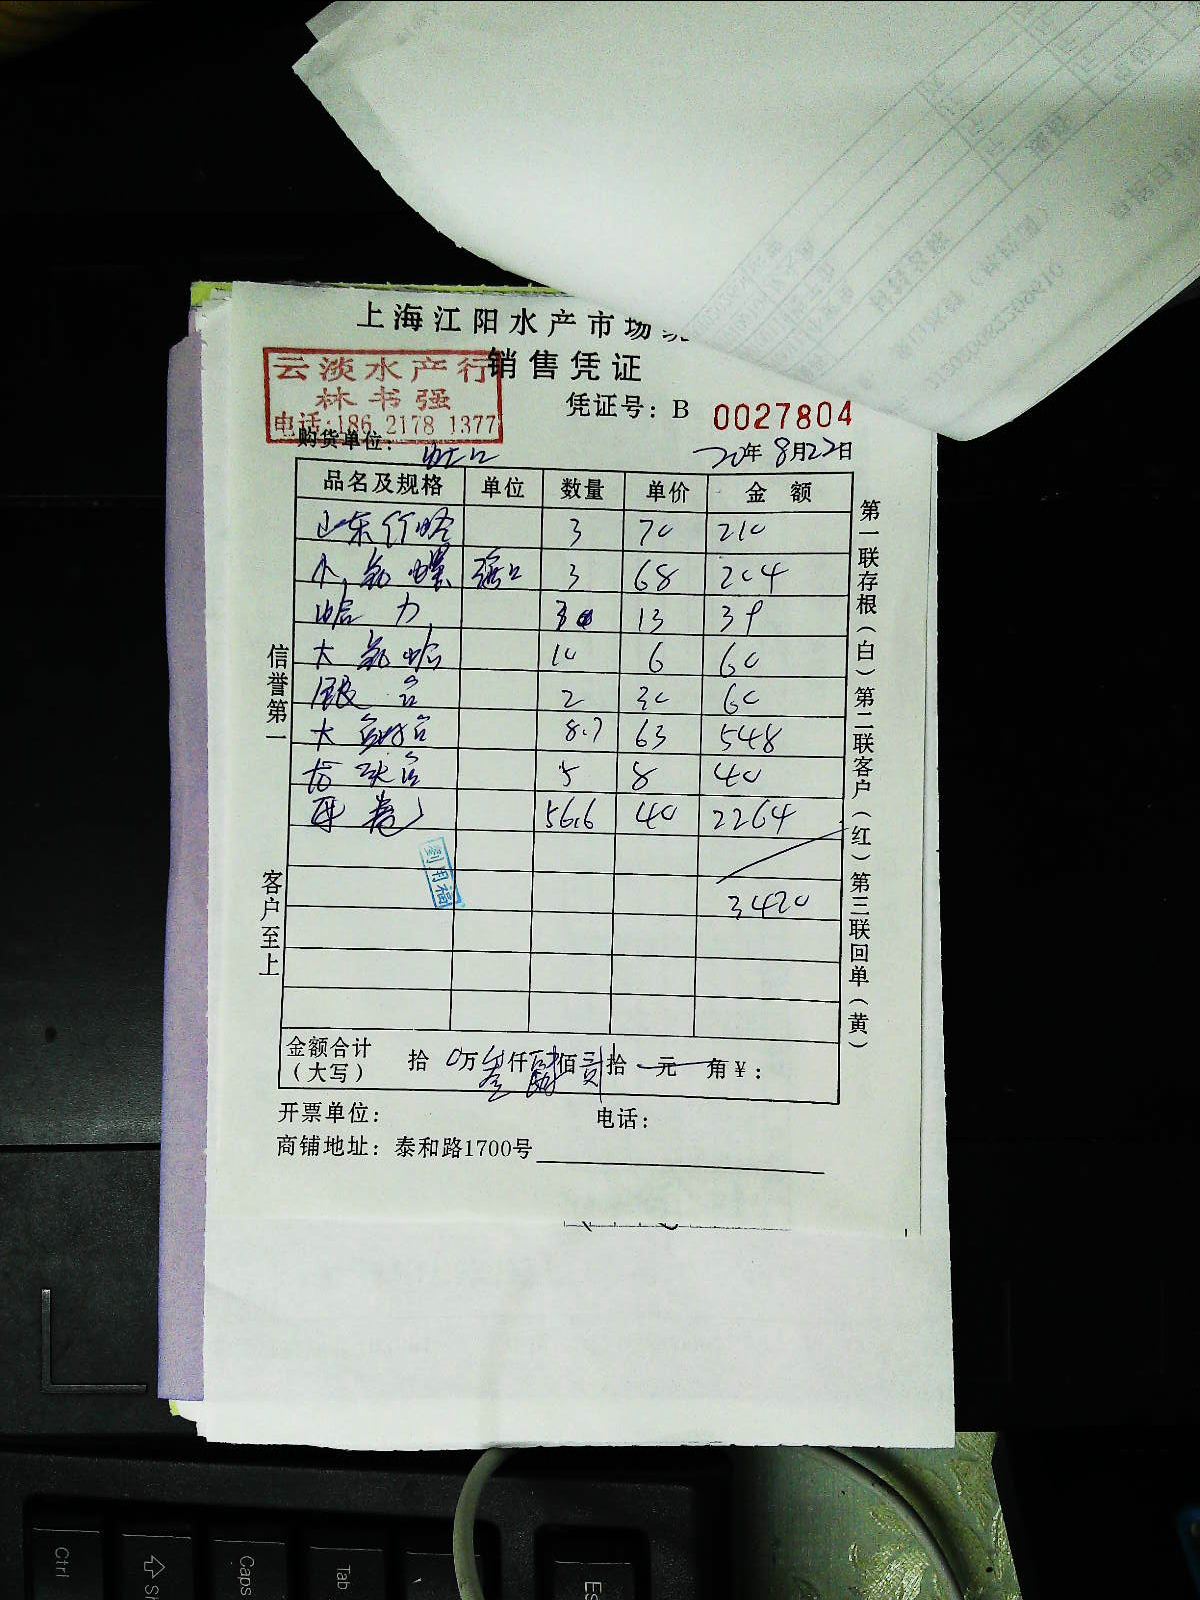 上海江阳水产市场
销售凭证
云淡水产行
林书强
电话:186 2178 1377
凭证号: B 0027804
购货单位: 虹口
20年8月22日
品名及规格 单位 数量 单价 金额
山东竹蛏 3 70 210
小 螺 3 68 204
蛤 力 3 13 39
大 蛤 10 6 60
银 2 30 60
大 8.7 63 548
5 8 40
56.6 40 2264
3420
刘用福
金额合计
(大写) 拾 0万叁仟肆佰贰拾 元 角¥:
开票单位: 电话:
商铺地址: 泰和路1700号
信誉第一
客户至上
第一联存根(白)第二联客户(红)第三联回单(黄)
Ctrl
Caps
Tab